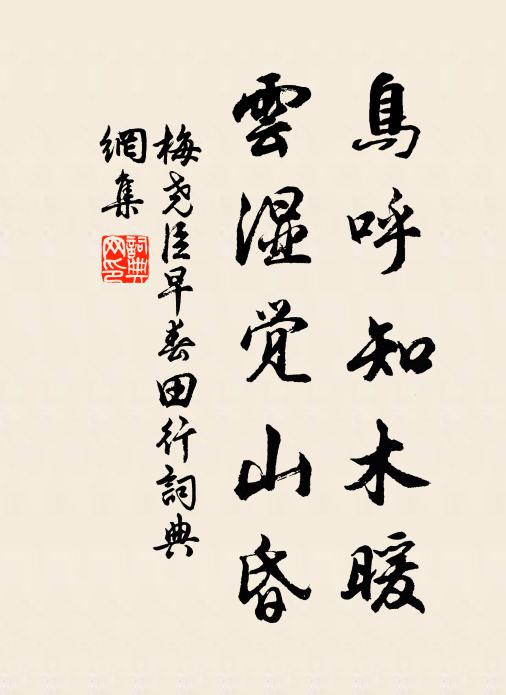 鳥呼知木暖
雲湿觉山昏
梅尧臣早春田行詞典
網集
詞典
网印